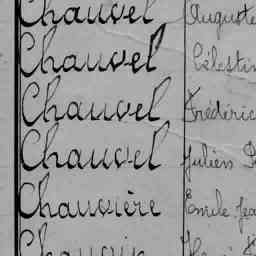 Chauvel Auguste
Chauvel Célestin
Chauvel Frédéric
Chauvel Julien
Chauvière Emile Jea
Chauvin